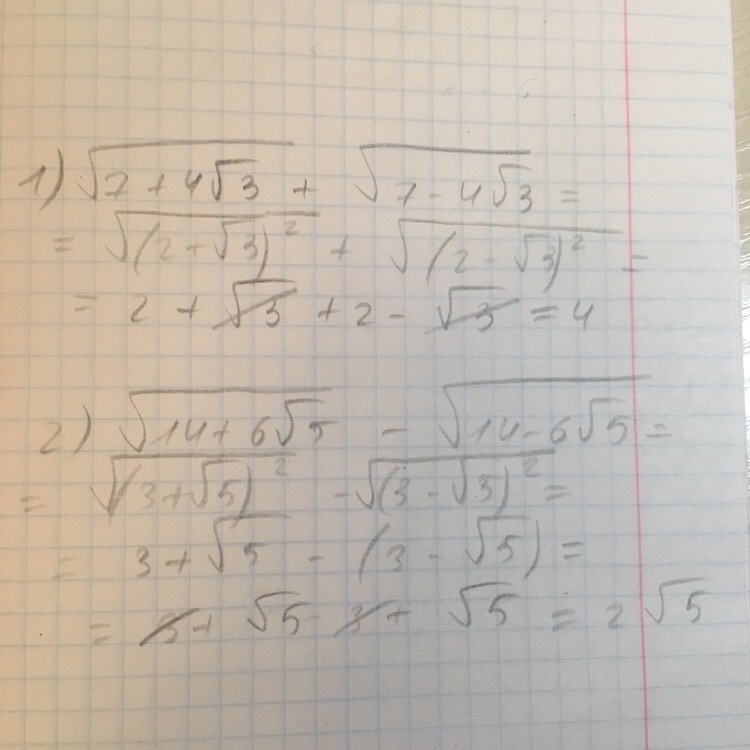 1) √(7 + 4√3) + √(7 - 4√3) =
= √((2 + √3)²) + √((2 - √3)²) =
= 2 + √3 + 2 - √3 = 4
2) √(14 + 6√5) - √(14 - 6√5) =
= √((3 + √5)²) - √((3 - √5)²) =
= 3 + √5 - (3 - √5) =
= 3 + √5 - 3 + √5 = 2√5